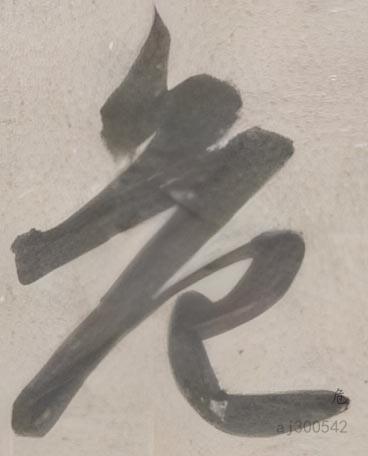 危
危
aj300542